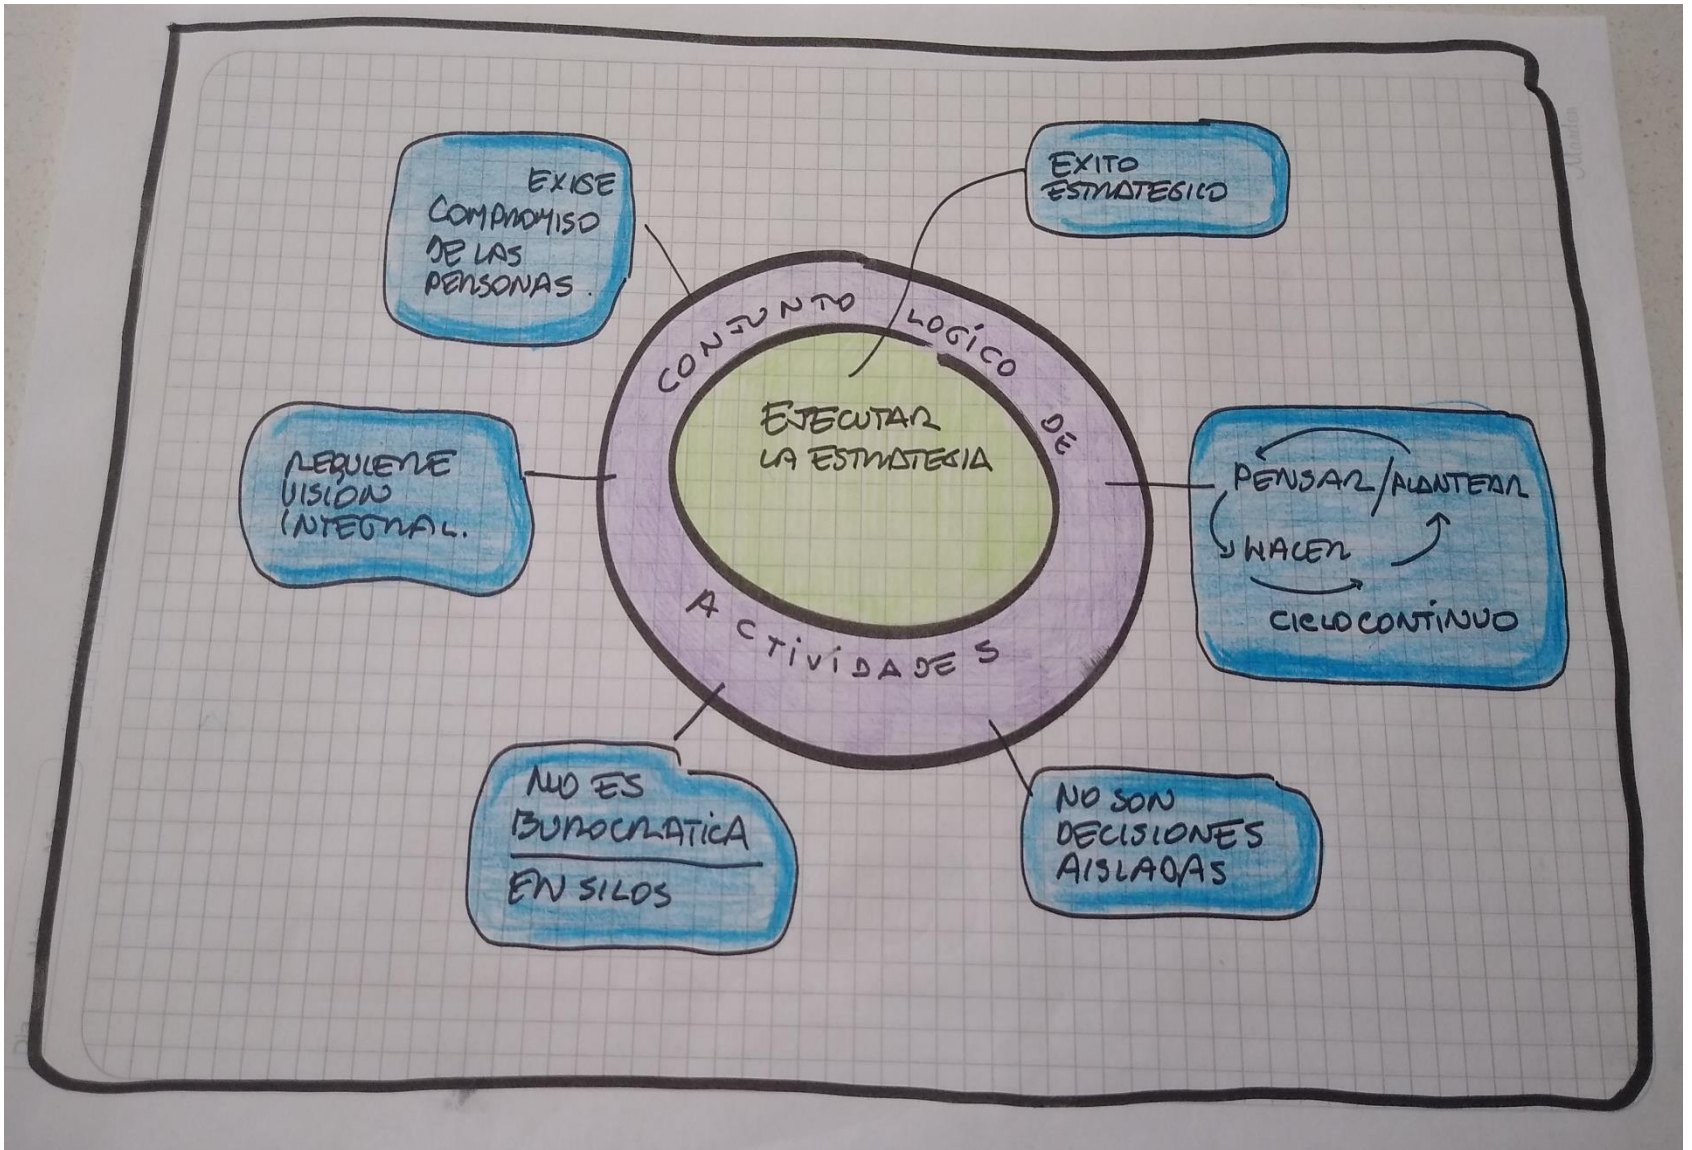 EXIGE
COMPROMISO
DE LAS
PERSONAS.
EXITO
ESTRATEGICO
CONJUNTO LOGÍCO DE
ACTIVIDADES
EJECUTAR
LA ESTRATEGIA
REQUIERE
VISION
INTEGRAL.
PENSAR/PLANTEAR
HACER
CICLO CONTINUO
NO ES
BUROCRATICA
EN SILOS
NO SON
DECISIONES
AISLADAS